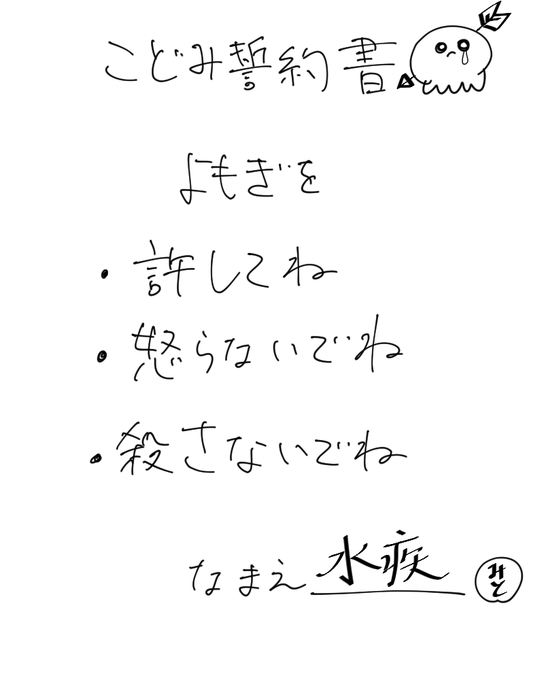 こどみ誓約書
よもぎを
・許してね
・怒らないでね
・殺さないでね
なまえ 水疾 みと